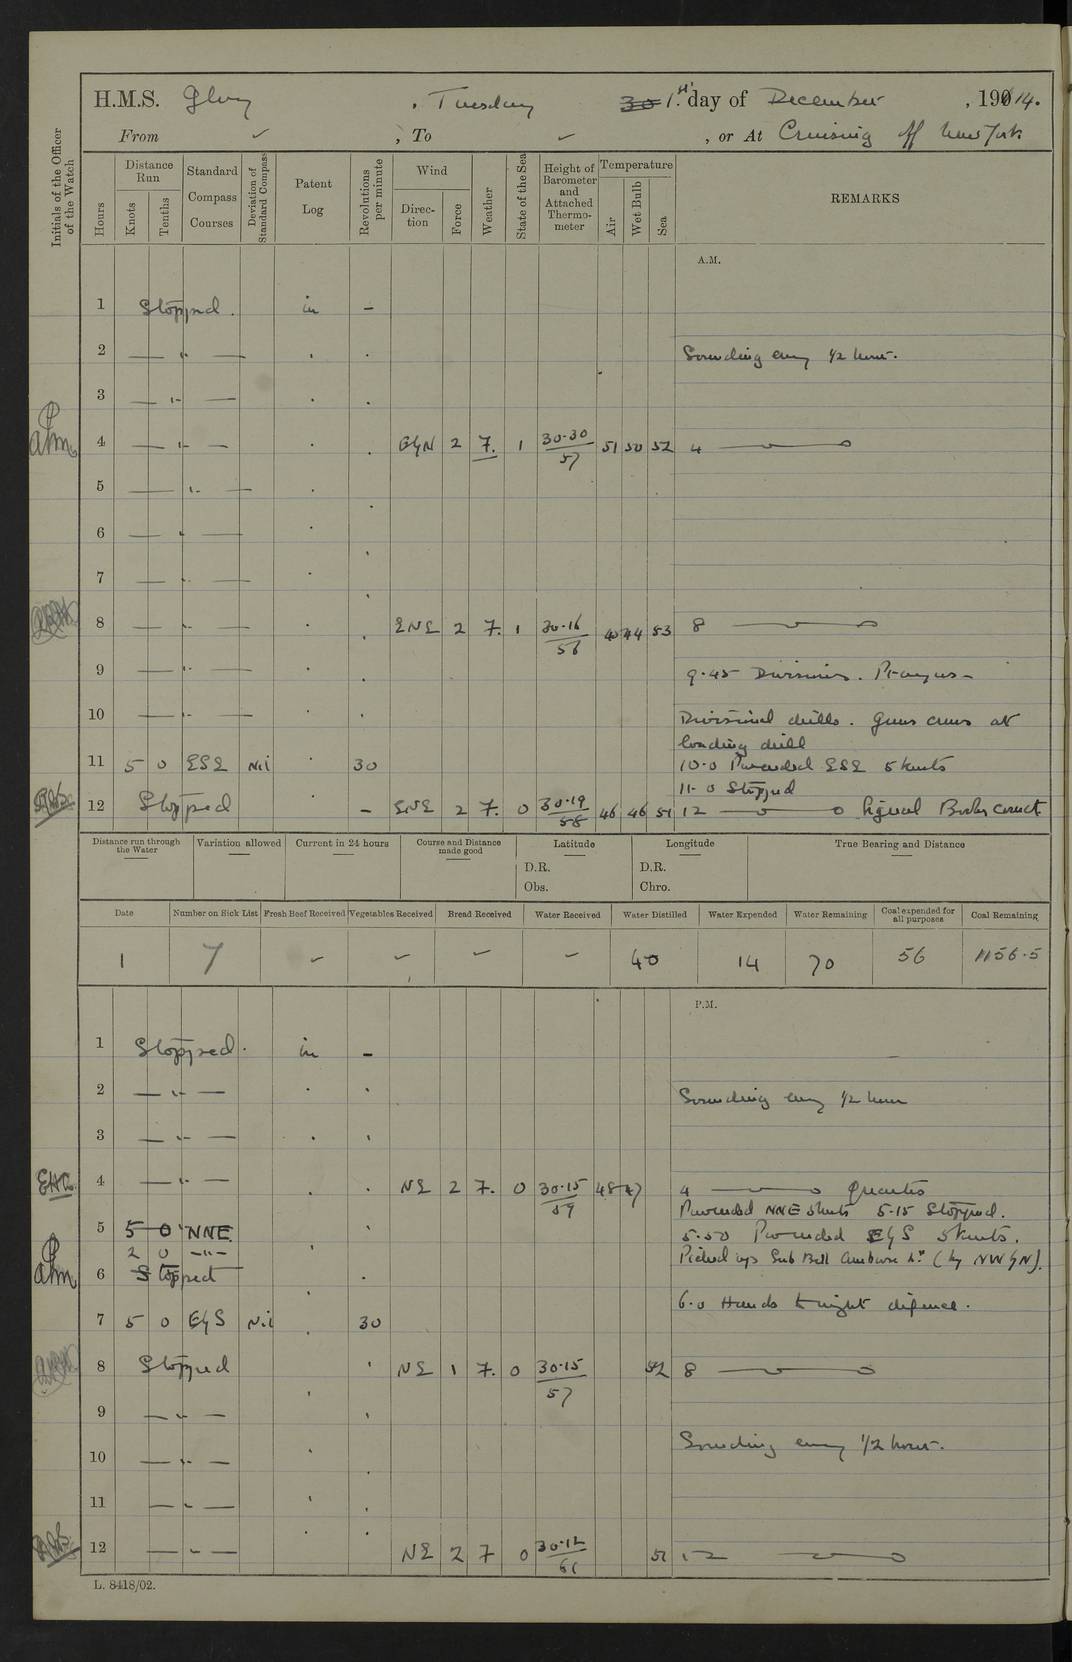 H.M.S. Glory , Tuesday 30 1st day of December , 1914.
From ✓ , To ✓ , or At Cruising off New York
Initials of the Officer of the Watch
Hours
Distance Run
Knots Tenths
Standard Compass Courses
Deviation of Standard Compass
Patent Log
Revolutions per minute
Wind
Direction Force
Weather
State of the Sea
Height of Barometer and Attached Thermometer
Temperature
Air Wet Bulb Sea
REMARKS
A.M.
1 Stopped. in –
2 — " — . . Sounding every 1/2 hour.
3 — " — . .
4 — " — . . EbyN 2 7. 1 30.30/57 51 50 52 4
5 — " — . .
6 — " — . .
7 — " — . .
8 — " — . . ENE 2 7. 1 30.16/56 44 53 8
9 — " — . . 9.45 Divisions. Prayers –
10 — " — . . Divisional drills. Guns crews at
loading drill
11 5 0 ESE Nil . 30 10.0 Proceeded ESE 5 knots
11.0 Stopped
12 Stopped – ENE 2 7. 0 30.19/58 46 46 51 12 Signal Books correct.
Distance run through the Water
Variation allowed
Current in 24 hours
Course and Distance made good
Latitude
D.R.
Obs.
Longitude
D.R.
Chro.
True Bearing and Distance
Date Number on Sick List Fresh Beef Received Vegetables Received Bread Received Water Received Water Distilled Water Expended Water Remaining Coal expended for all purposes Coal Remaining
1 7 – – – – 40 14 70 56 1156.5
P.M.
1 Stopped. in –
2 — " — . . Sounding every 1/2 hour
3 — " — . .
4 — " — . . NE 2 7. 0 30.15/59 48 47 4 Quarters
Proceeded NNE 5 knots 5.15 Stopped.
5 5 0 NNE. 5.50 Proceeded EbyS 5 knots.
2 0 — " — Picked up Sub Bell Ambrose Lt. (by NWbyN).
6 Stopped
6.0 Hands to night defence.
7 5 0 EbyS Nil . 30
8 Stopped NE 1 7. 0 30.15/57 52 8
9 — " — .
10 — " — . . Sounding every 1/2 hour.
11 — " — . .
12 — " — . . NE 2 7 0 30.12/61 51 12
L. 8418/02.